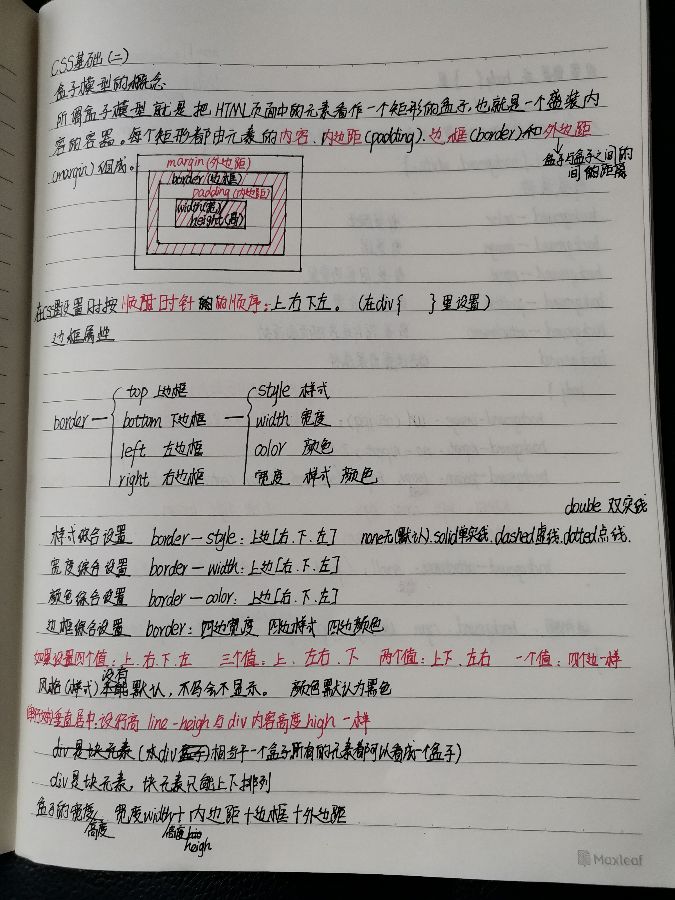 CSS基础(二)
盒子模型的概念
所谓盒子模型就是把HTML页面中的元素看作一个矩形的盒子,也就是一个盛装内
容的容器。每个矩形都由元素的内容、内边距(padding)、边框(border)和外边距
(margin)组成。
盒子与盒子之间的
间的距离
margin(外边距)
border(边框)
padding(内边距)
width(宽)
height(高)
在css里设置时按顺时针的顺序:上右下左。(在div{ }里设置)
边框属性
top 上边框 style 样式
border— bottom 下边框 — width 宽度
left 左边框 color 颜色
right 右边框 宽度 样式 颜色
double 双实线
样式综合设置 border-style:上边[右.下.左] none无(默认).solid单实线.dashed虚线.dotted点线.
宽度综合设置 border-width:上边[右.下.左]
颜色综合设置 border-color:上边[右.下.左]
边框综合设置 border:四边宽度 四边样式 四边颜色
如果设置四个值:上.右.下.左 三个值:上.左右.下 两个值:上下.左右 一个值:四个边一样
没有
风格(样式)默认,不写会不显示。 颜色默认为黑色
垂直居中:设行高 line-heigh与div内容高度high一样
div是块元素(水div盒子)相当于一个盒子所有的元素都可以看成一个盒子)
div是块元素,块元素只能上下排列
盒子的宽度,宽度width+内边距+边框+外边距
高度 高度 heigh
Maxleaf